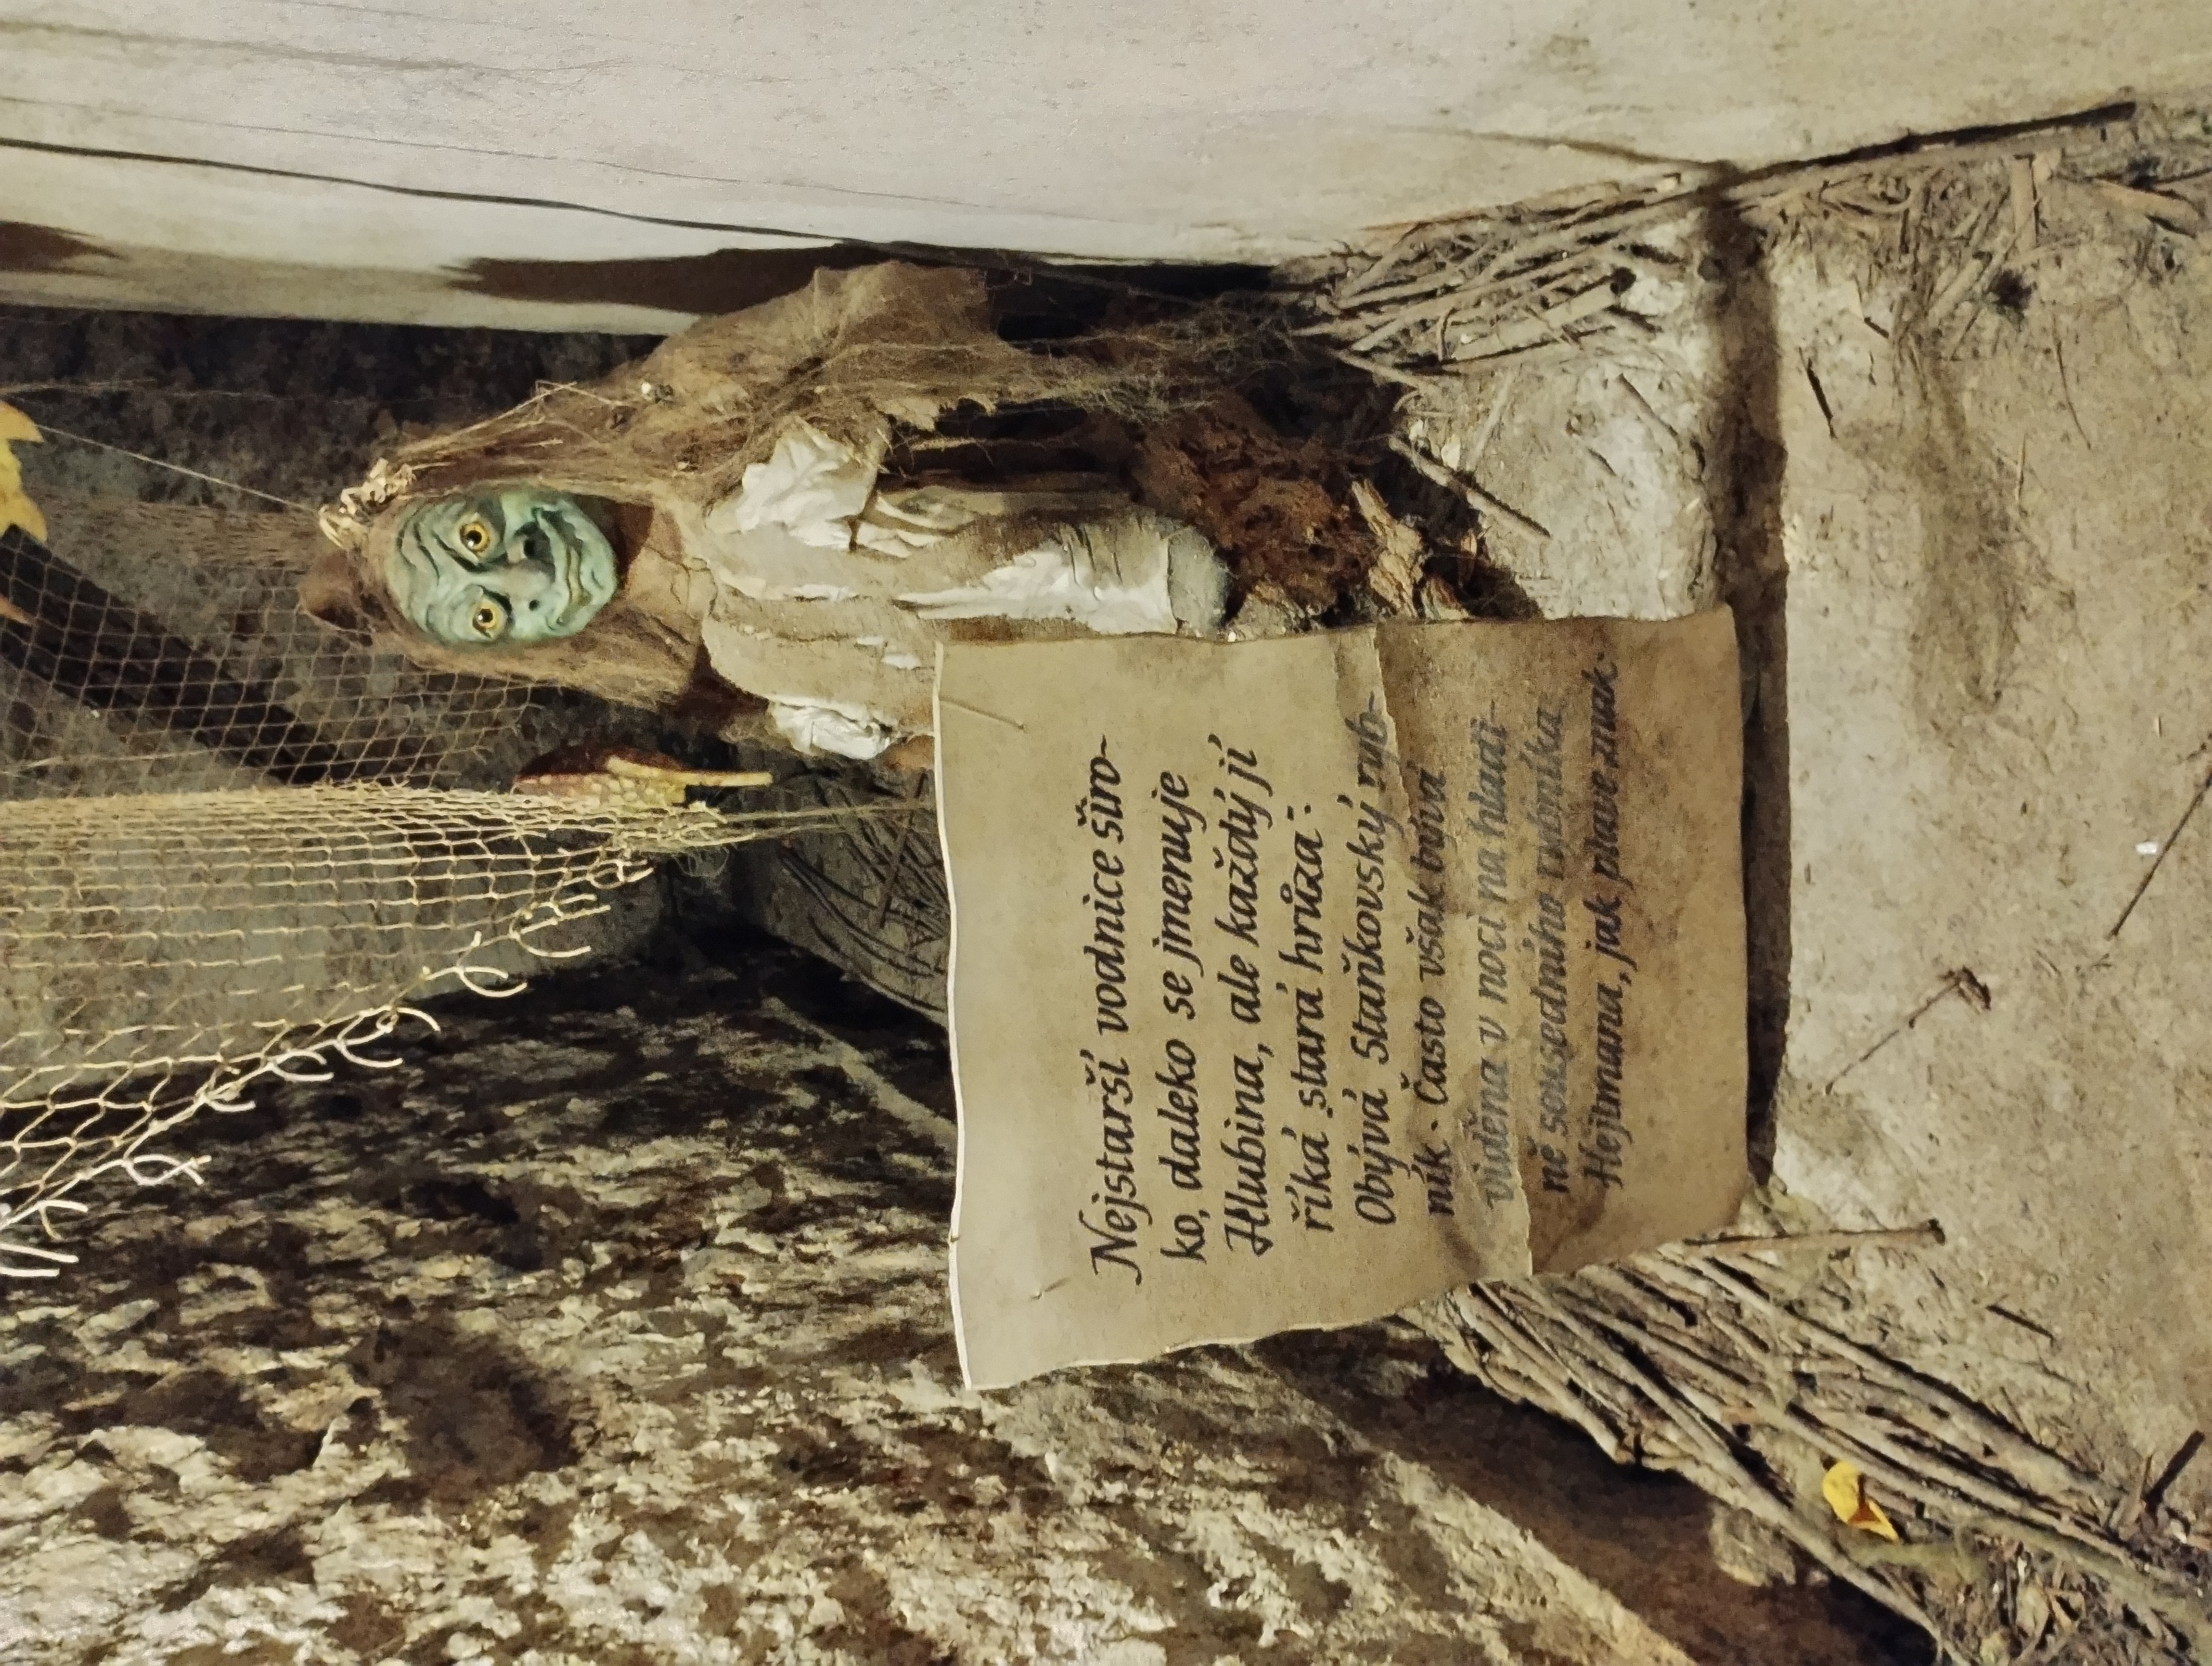 Nejstarší vodnice širo-
ko, daleko se jmenuje
Hlubina, ale každý jí
říká „stara hrůza“.
Obývá Staňkovský ryb-
ník. Často však bývá
viděna v noci na hladi-
ně sousedního rybníka
Hejtmana, jak plave znak.